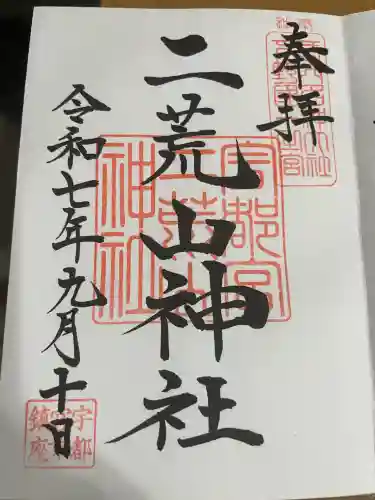 奉拝
二荒山神社
令和七年九月十日
宇都宮
二荒山
神社
宇都
宮
鎮座